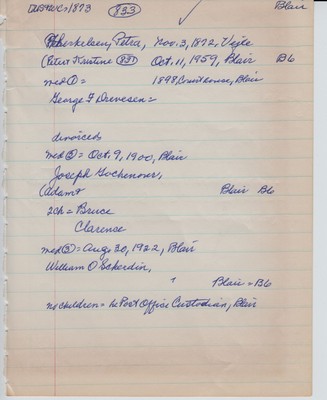 833 Blair
Petra, Nov. 3, 1872, Vejle
(Peter Kristine 831) Oct. 11, 1959, Blair B6
med ① = 1898, Courthouse, Blair
George F Drevesen =
divorced
med ② = Oct. 9, 1900, Blair
Joseph Gochenour,
(Adam Blair B6
2 ch = Bruce
Clarense
med ③ = Aug 30, 1922, Blair
William O Sckerdin,
Blair = B6
no children = he Post Office Custodian, Blair